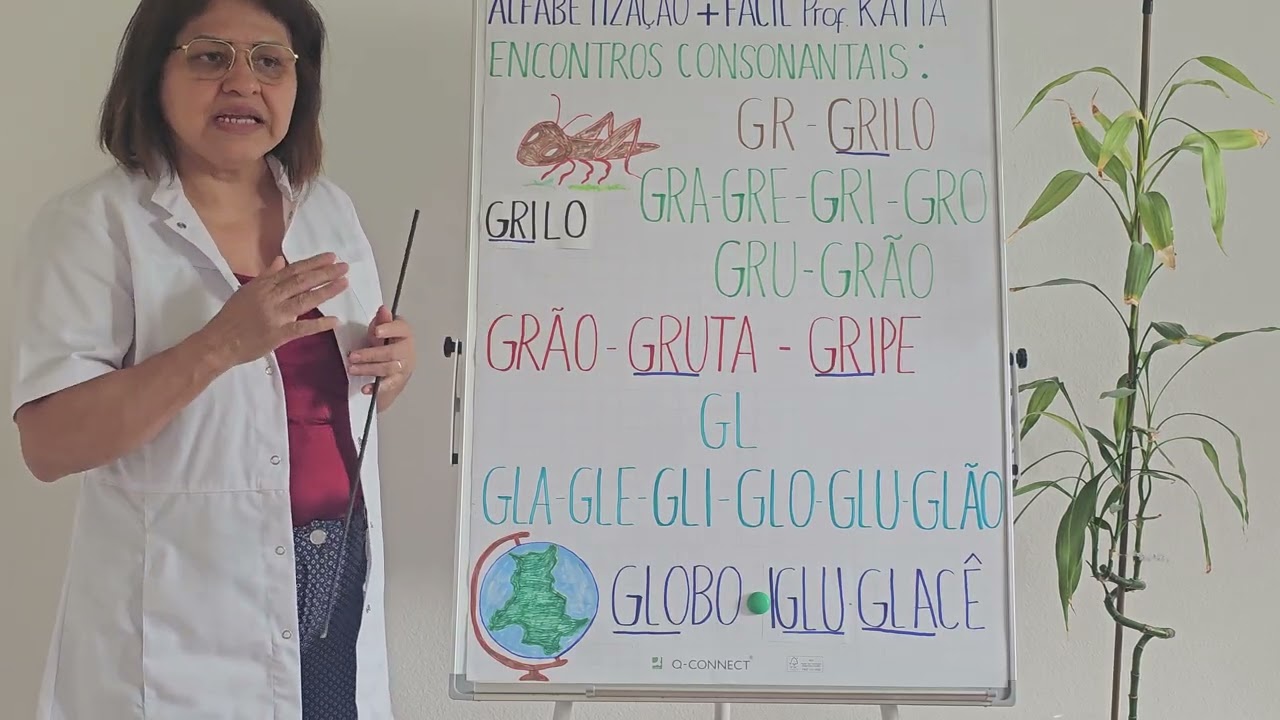 ALFABETIZAÇÃO + FÁCIL Prof. KATIA
ENCONTROS CONSONANTAIS:
GR - GRILO
GRILO
GRA-GRE-GRI-GRO
GRU-GRÃO
GRÃO - GRUTA - GRIPE
GL
GLA-GLE-GLI-GLO-GLU-GLÃO
GLOBO IGLU GLACÊ
Q-CONNECT